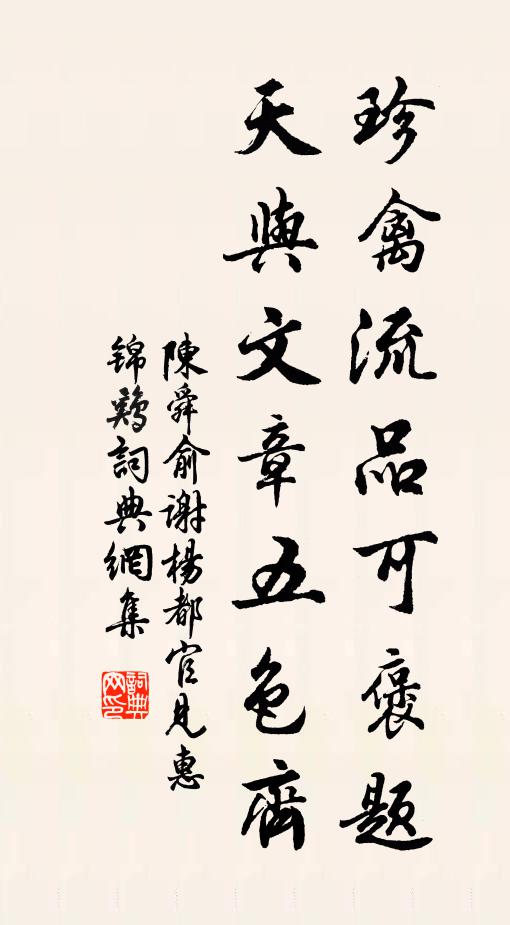 珍禽流品可褒題
天與文章五色齊
陳舜俞謝楊都官見惠
锦鷄詞典網集
詞典网印